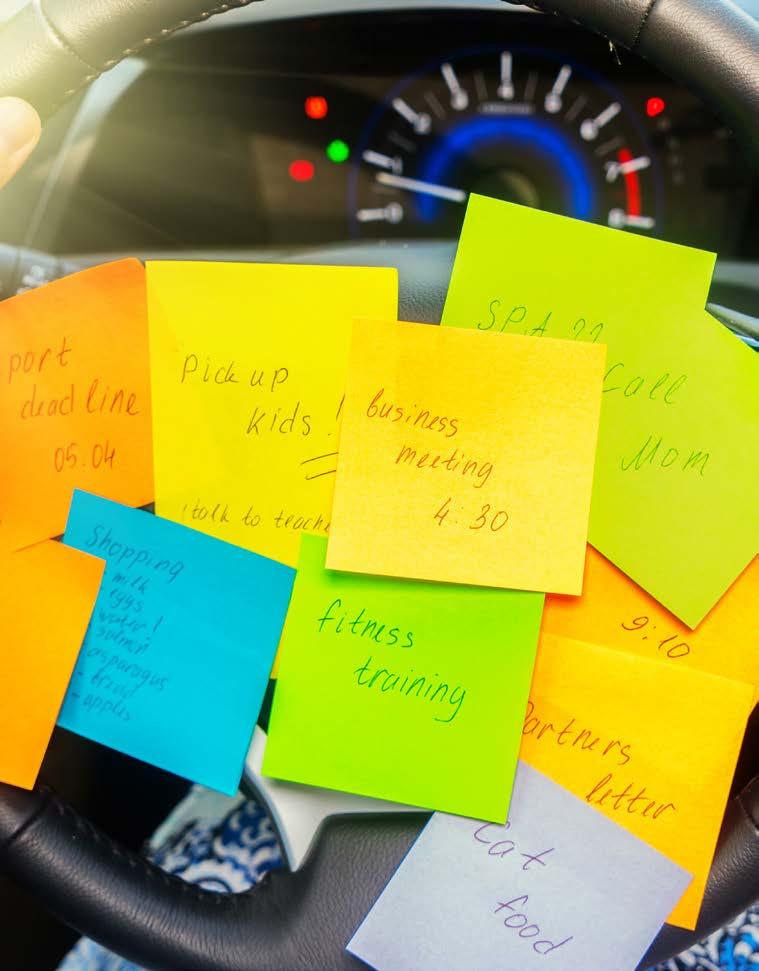 port
dead line
05.04
Pick up
kids!
(talk to teache
business
meeting
4:30
SPA ??
Call
Mom
Shopping
- milk
- eggs
- water!
- salmon
- asparagus
- bread
- apples
fitness
training
9:10
Partners
letter
Cat
food